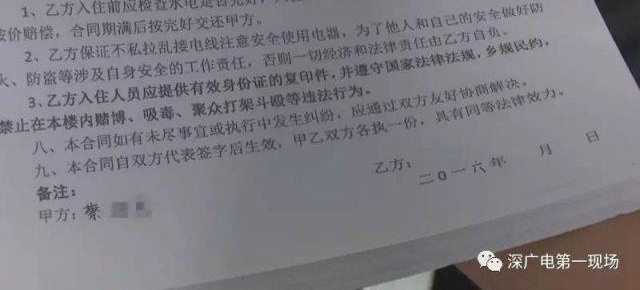 1、乙方入住前应检查水电是否完好，
按价赔偿，合同期满后按完好交还甲方。
2、乙方保证不私拉乱接电线注意安全使用电器，为了他人和自己的安全做好防
火、防盗等涉及自身安全的工作责任，否则一切经济和法律责任由乙方自负。
3、乙方入住人员应提供有效身份证的复印件，并遵守国家法律法规，乡规民约，
禁止在本楼内赌博、吸毒、聚众打架斗殴等违法行为。
八、本合同如有未尽事宜或执行中发生纠纷，应通过双方友好协商解决。
九、本合同自双方代表签字后生效，甲乙双方各执一份，具有同等法律效力。
备注：
甲方：
乙方：
二〇一六年 月 日
深广电第一现场